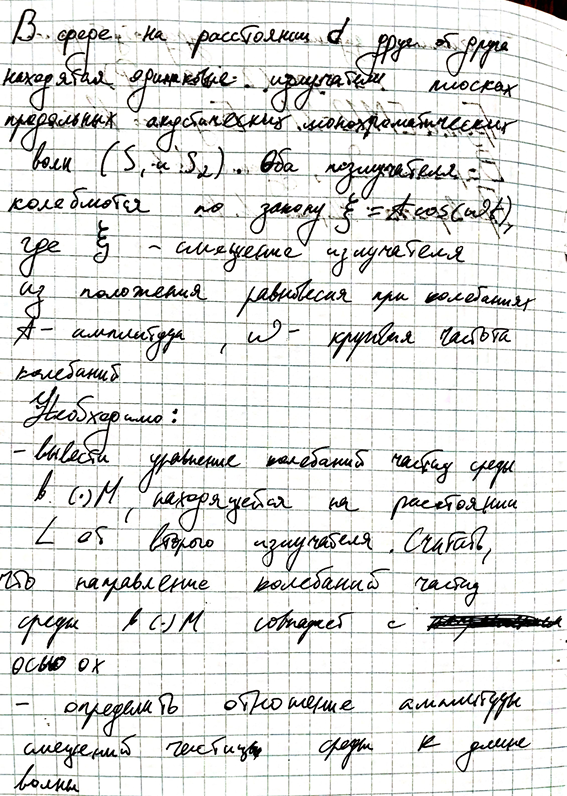 В сфере на расстоянии d друг от друга
находятся одинаковые излучатели плоских
продольных акустических монохроматических
волн (S₁ и S₂). Оба излучателя
колеблются по закону ξ = A cos(ωt),
где ξ - смещение излучателя
из положения равновесия при колебаниях
A - амплитуда, ω - круговая частота
колебаний
Необходимо:
- вывести уравнение колебаний частиц среды
в (·) M, находящейся на расстоянии
L от второго излучателя. Считать,
что направление колебаний частиц
среды в (·) M совпадает с
осью ox
- определить отношение амплитуды
смещений частицы среды к длине
волны